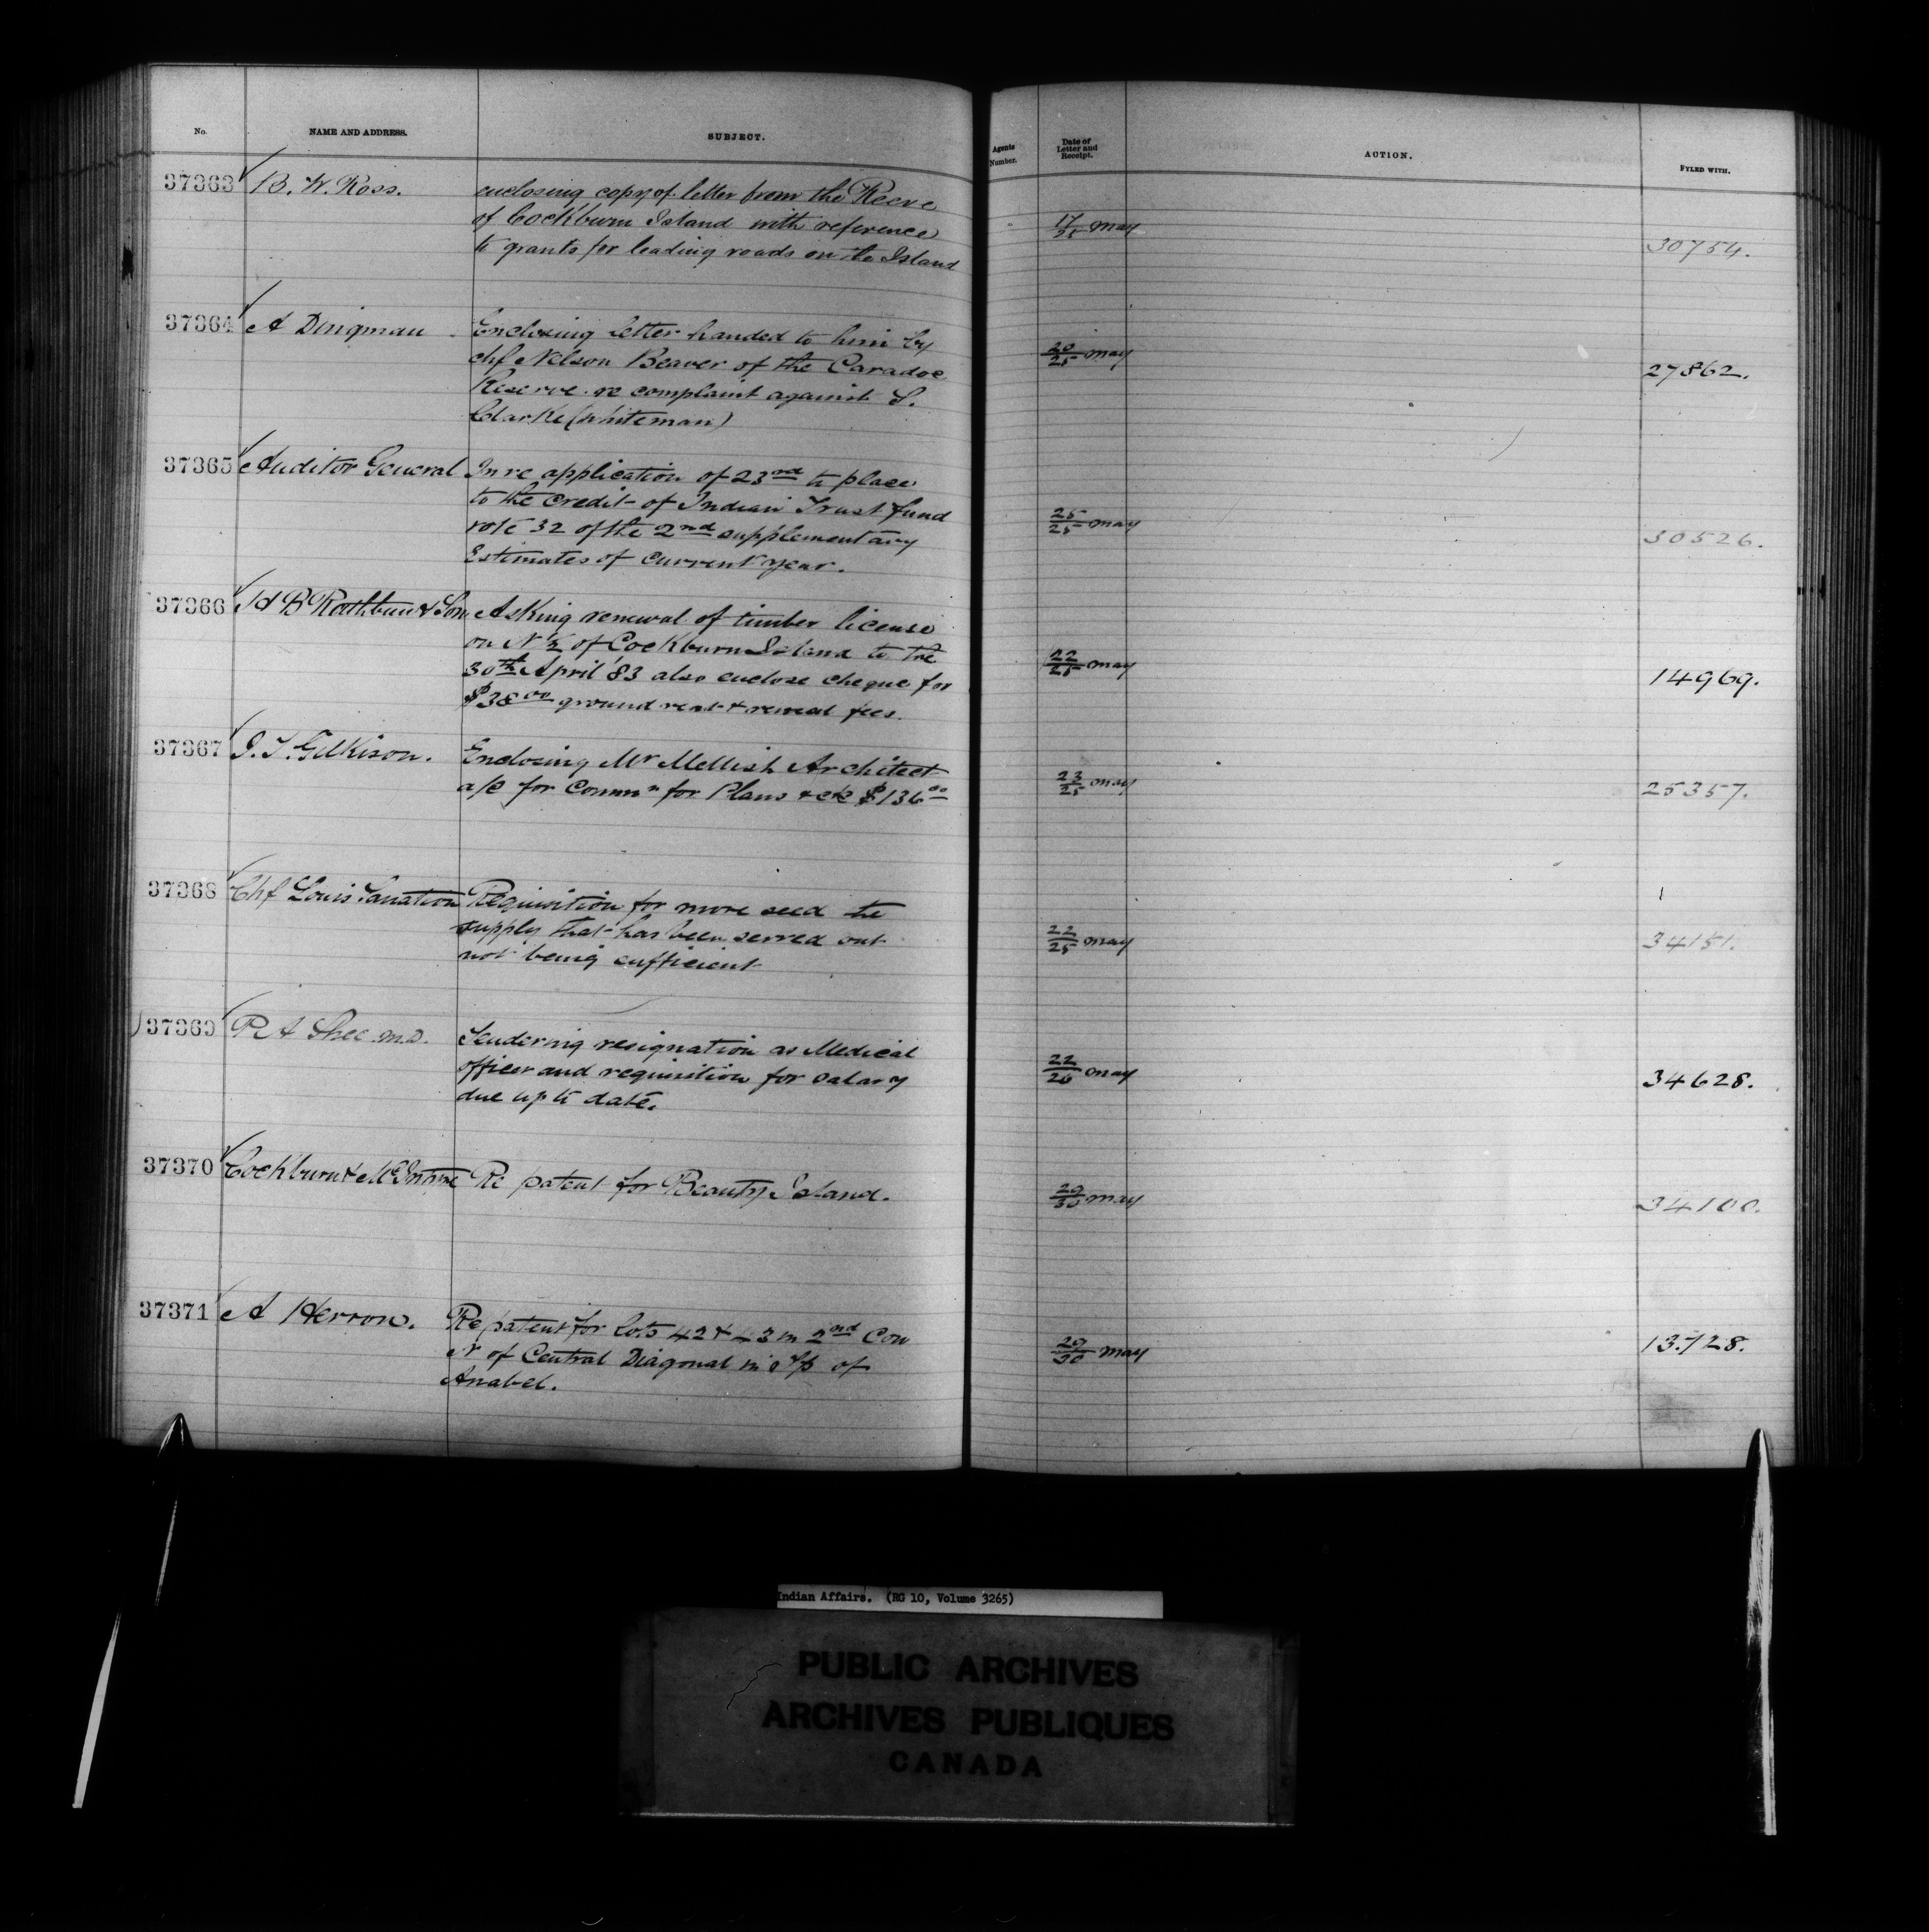 No. NAME AND ADDRESS. SUBJECT. Agents Number. Date of Letter and Receipt. ACTION. FYLED WITH.
37363 B. W. Ross. enclosing copy of letter from the Reeve
of Cockburn Island with reference
to grants for leading roads on the Island
17/25 May
30754.
37364 A Dingman Enclosing letter handed to him by
chf Nelson Beaver of the Caradoc
Reserve re complaint against S.
Clarke (whiteman)
20/25 May
27862.
37365 Auditor General In re application of 23rd to place
to the credit of Indian Trust fund
vote 32 of the 2nd supplementary
Estimates of current year.
25/25 May
30526.
37366 H B Rathbun & Son Asking renewal of timber license
on N ½ of Cockburn Island to the
30th April '83 also enclose cheque for
$38 00 ground rent & renewal fees.
22/25 May
14969.
37367 J. T. Gilkison. Enclosing Mr Mellish Architect
a/c for Commn for Plans &c &c $136 00
23/25 May
25357.
37368 Chf Louis Requisition for more seed the
supply that has been served out
not being sufficient
22/25 May
34151.
37369 R A Shee M.D. Tendering resignation as Medical
officer and requisition for salary
due up to date.
22/26 May
34628.
37370 Cockburn & McIntyre Re patent for Beauty Island.
29/30 May
34100.
37371 A Herron. Re patent for lots 42 & 43 in 2nd Con
N of Central Diagonal in T/p of
Anabel.
29/30 May
13.728.
Indian Affairs. (RG 10, Volume 3265)
PUBLIC ARCHIVES
ARCHIVES PUBLIQUES
CANADA